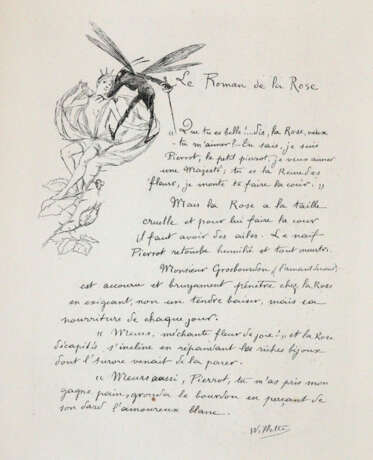 Le Roman de la Rose
" Que tu es belle !.. dis, la Rose, veux
- tu m'aimer ? Tu sais, je suis
Pierrot, le petit pierrot, je veux aimer
une Majesté ; tu es la Reine des
fleurs, je monte te faire la cour. "
Mais la Rose a la taille
cruelle et pour lui faire la cour
il faut avoir des ailes. Le naïf
Pierrot retombe humilié et tout meurtri.
Monsieur Grosbourdon (l'amant sérieux)
est accouru et bruyamment pénètre chez la Rose
en exigeant, non un tendre baiser, mais sa
nourriture de chaque jour.
" Meurs, méchante fleur de joie ! " et la Rose
décapitée s'incline en répandant les riches bijoux
dont l'aurore venait de la parer.
" Meurs aussi, Pierrot, tu m'as pris mon
gagne pain, gronda le bourdon en perçant de
son dard l'amoureux blanc.
Willette